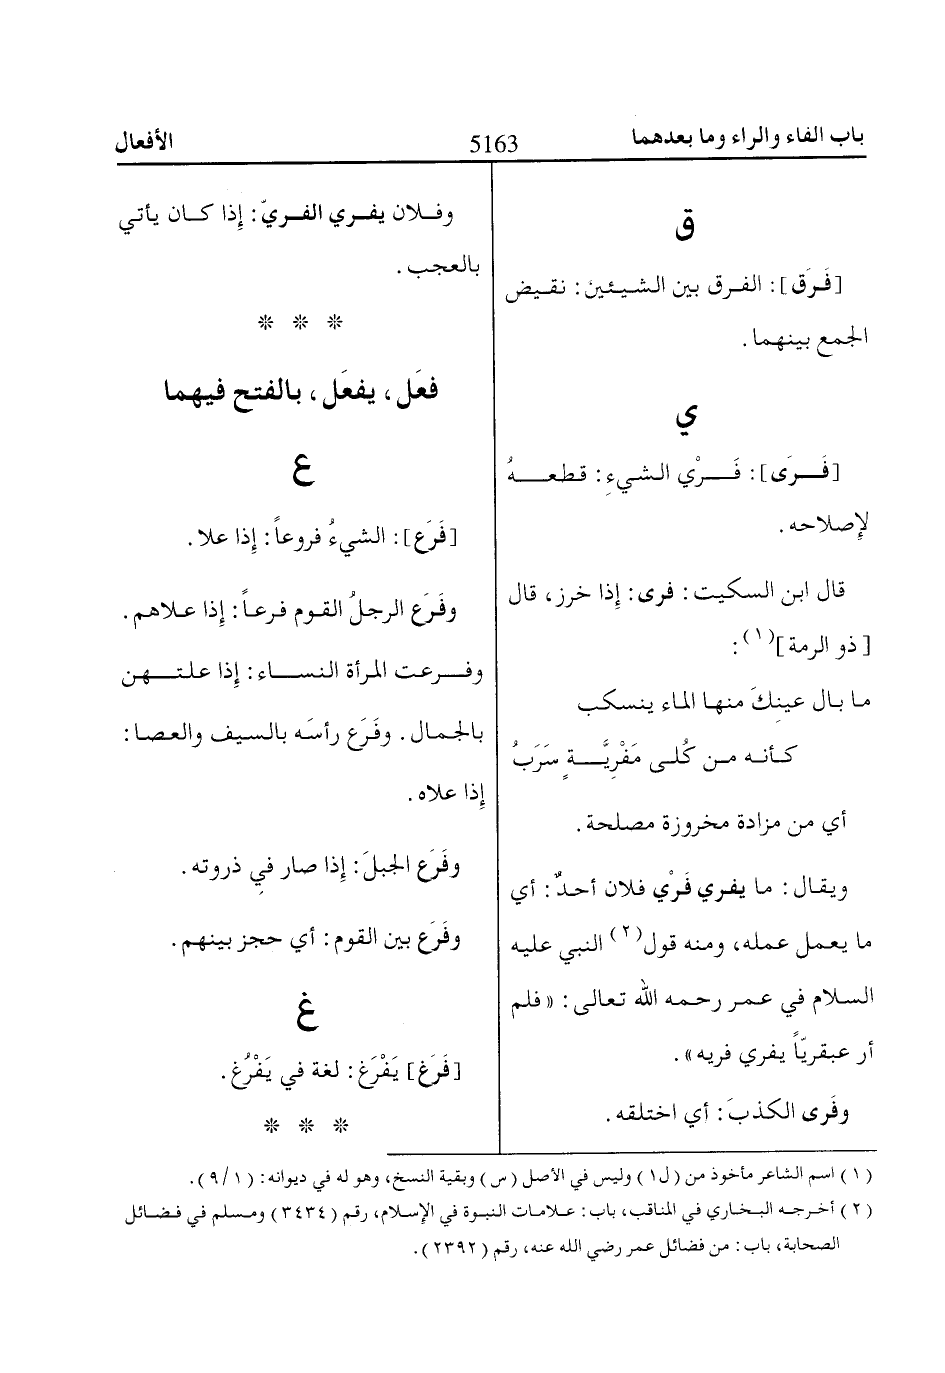 باب الفاء والراء وما بعدهما 5163 الأفعال
ق
[فَرَق]: الفرق بين الشيئين: نقيض
الجمع بينهما.
ي
[فَرَى]: فَرْي الشيءِ: قطعهُ
لإصلاحه.
قال ابن السكيت: فرى: إذا خرز، قال
[ذو الرمة](١):
ما بال عينِكَ منها الماء ينسكب
كأنه من كُلى مَفْرِيَّةٍ سَرَبُ
أي من مزادة مخروزة مصلحة.
ويقال: ما يفري فَرْي فلان أحدٌ: أي
ما يعمل عمله، ومنه قول(٢) النبي عليه
السلام في عمر رحمه الله تعالى: «فلم
أر عبقريّاً يفري فريه».
وفَرى الكذبَ: أي اختلقه.
وفلان يفري الفريّ: إذا كان يأتي
بالعجب.
* * *
فعَل، يفعَل، بالفتح فيهما
ع
[فَرَع]: الشيءُ فروعاً: إذا علا.
وفَرَع الرجلُ القوم فرعاً: إذا علاهم.
وفرعت المرأة النساء: إذا علتهن
بالجمال. وفَرَع رأسَه بالسيف والعصا:
إذا علاه.
وفَرَع الجبلَ: إذا صار في ذروته.
وفَرَع بين القوم: أي حجز بينهم.
غ
[فَرَغ] يَفْرَغ: لغة في يَفْرُغ.
* * *
(١) اسم الشاعر مأخوذ من (ل١) وليس في الأصل (س) وبقية النسخ، وهو له في ديوانه: (٩/١).
(٢) أخرجه البخاري في المناقب، باب: علامات النبوة في الإسلام، رقم (٣٤٣٤) ومسلم في فضائل
الصحابة، باب: من فضائل عمر رضي الله عنه، رقم (٢٣٩٢).